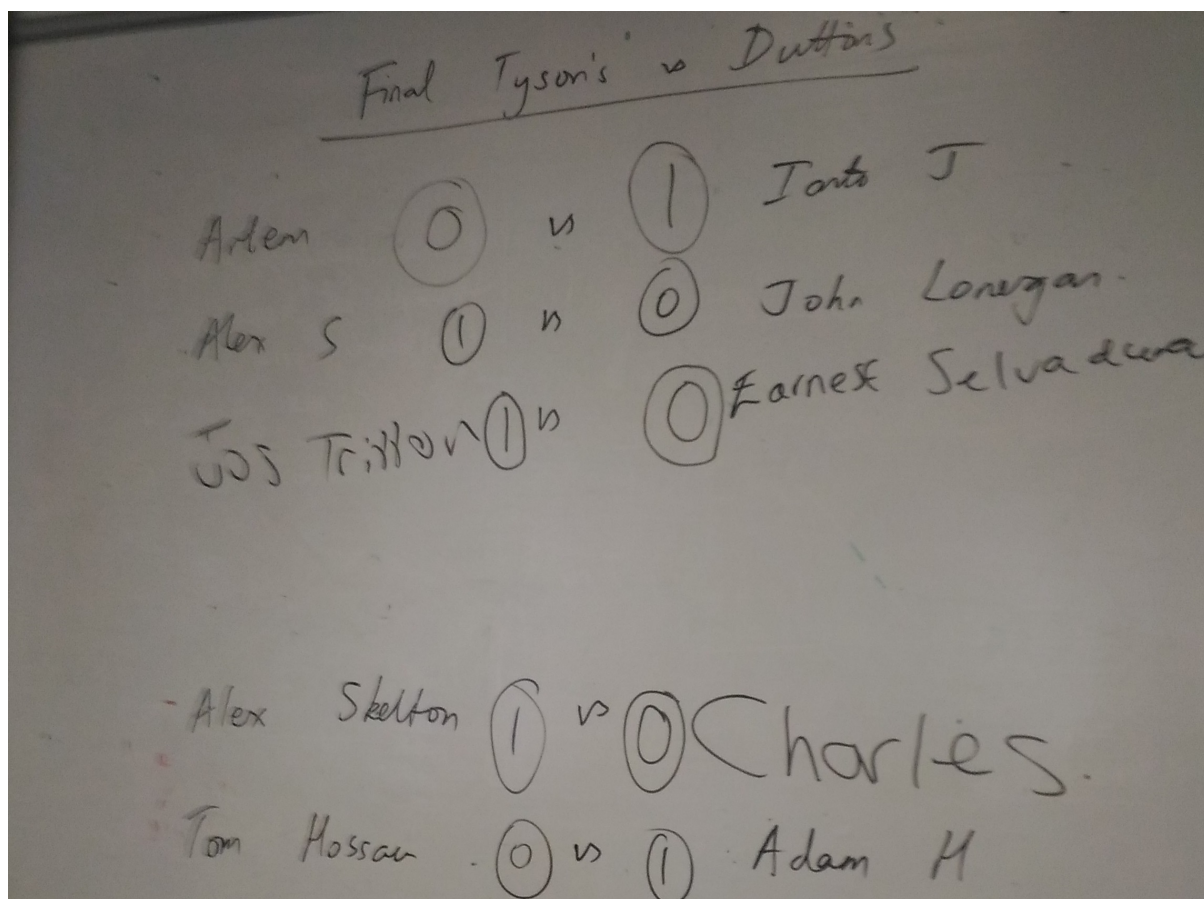 Final Tyson's vs Duttons
Artem 0 vs 1 Ianto J
Alex S 1 vs 0 John Lonergan.
Jos Tritton 1 vs 0 Earnest
Alex Skelton 1 vs 0 Charles.
Tom Hossau 0 vs 1 Adam H